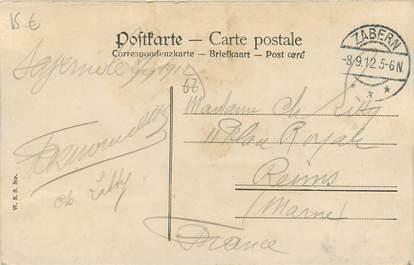 15 €
Postkarte – Carte postale
Correspondenzkarte – Briefkaart – Post card
ZABERN
-8.9.12.5-6N
* * *
Saverne 8/9/1912
67
Madame Ch
11 Place Royale
Reims
(Marne)
France
Ch
W. S. S. Str.